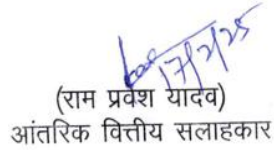 17/2/25
(राम प्रवेश यादव)
आंतरिक वित्तीय सलाहकार